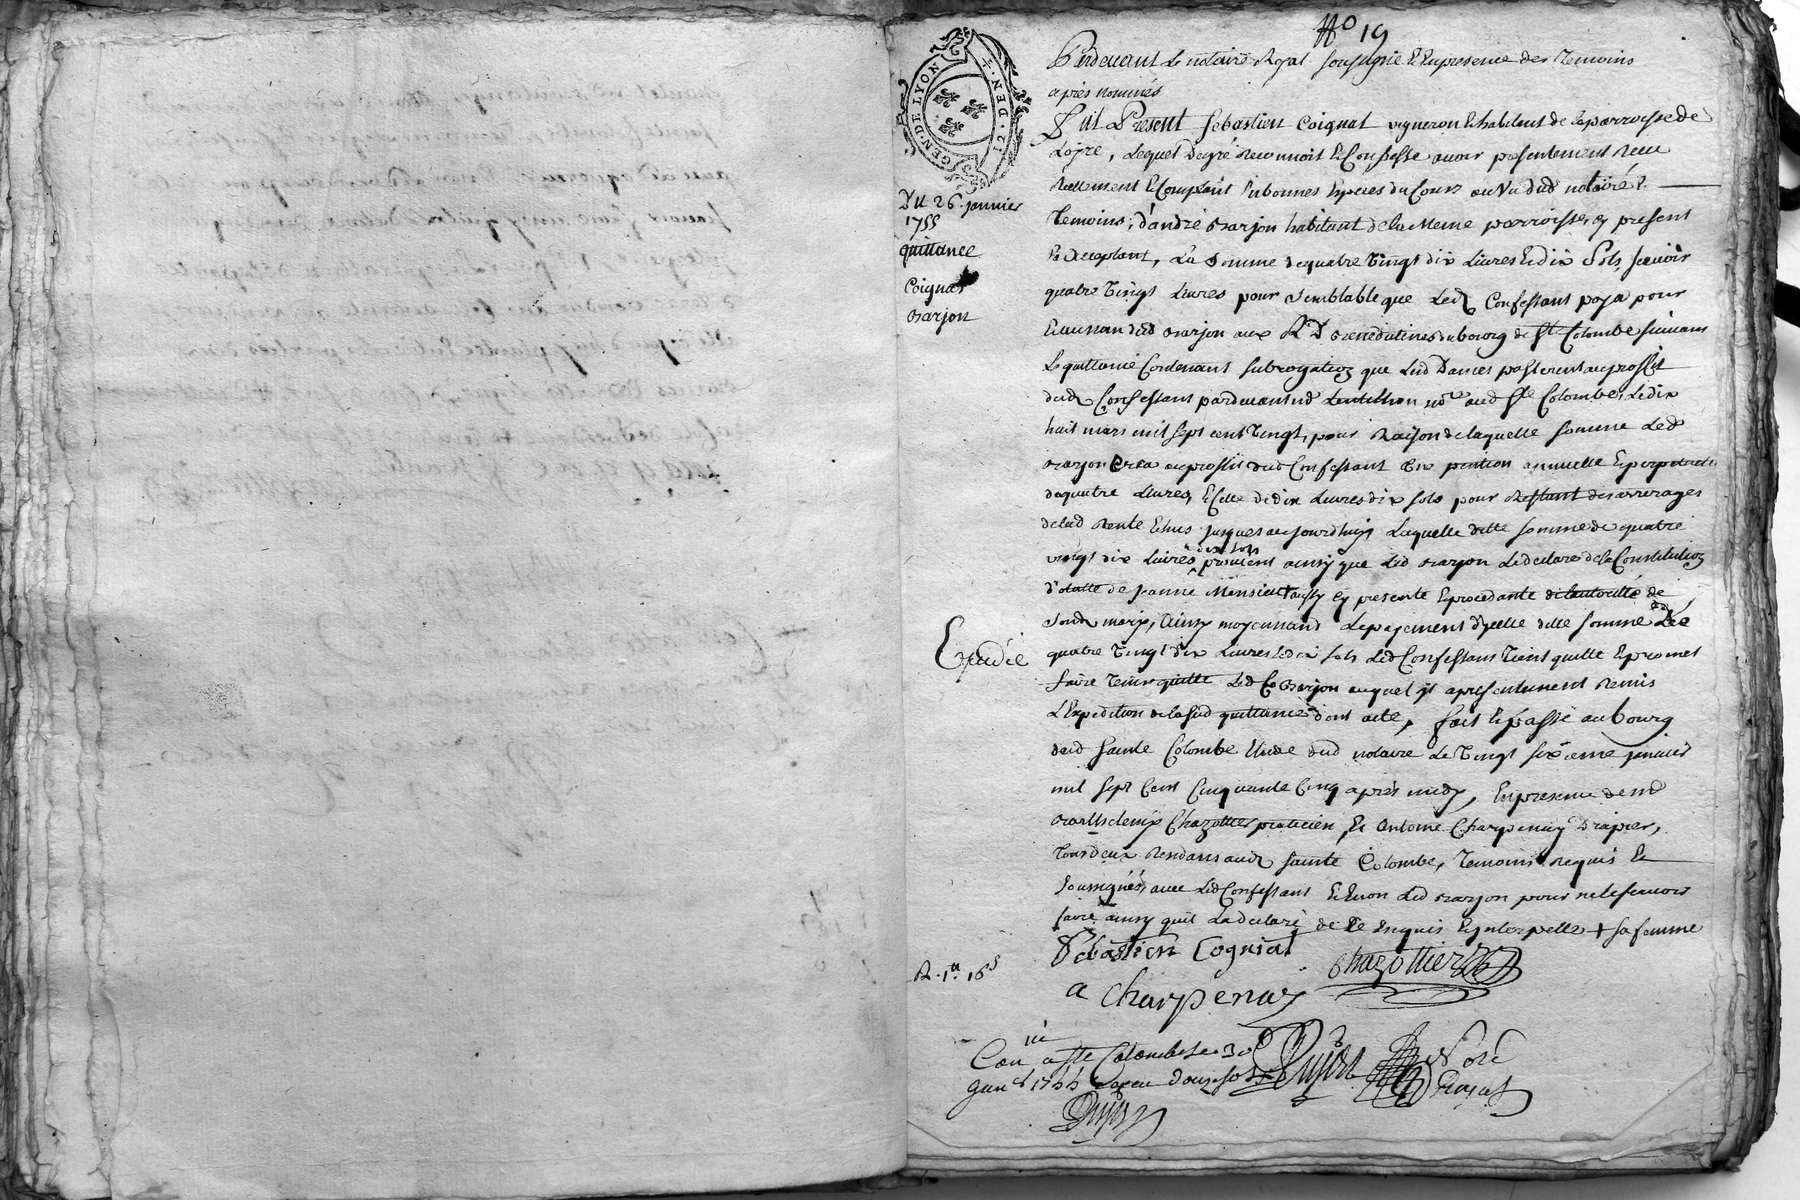 No 19
GEN. DE LYON
12. DEN. 4
Du 26. janvier
1755
quittance
Coignat
Barjon
Expédiée
Pardevant le notaire Royal soussigné Et Enpresence des Temoins
apres nommés
Fut Present Sebastien Coignat vigneron Ethabitant de la parroisse de
Loire, Lequel degré Reconnoit Et Confesse avoir presentement Receu
Reellement Et Comptant Enbonnes Especes du Cours au Vu dud notaire &
Temoins, d'andré Barjon habitant de la Meme parroisse, cy present
Et acceptant, La Somme de quatre Vingt dix Livres Et dix Sols, scavoir
quatre Vingt Livres pour Semblable que Led Confessant paya pour
Et aunom dud Barjon aux Benedictines du bourg de Ste Colombe suivant
La quittance Contenant Subrogation que Lesd Dames passerent auproffit
dud Confessant pardevant Lentillon nore aud Ste Colombe, Ledix
huit mars mil sept cent Vingt, pour Raison de laquelle somme Led
Barjon Crea auproffit dud Confessant Une pention annuelle Et perpetuelle
de quatre Livres, Et Celle de dix Livres dix sols pour Restant des arrerages
de lad Rente Echus jusques aujourdhuy Laquelle ditte somme de quatre
vingt dix Livres dix sols provient ainsy que Led Barjon Le declare de la Constitution
Dotalle de Jeanne aussy cy presente Et procedante de lautorité de
Sond mary, Ainsy moyennant Lepayement d'ycelle ditte somme de
quatre Vingt Dix Livres Et dix sols Led Confessant Tient quitte Et promet
faire Tenir quitte Led Barjon auquel il apresentement Remis
L'Expedition de la susd quittance dont acte, fait Et passé au bourg
dud Sainte Colombe Etude dud notaire Le Vingt sixieme janvier
mil sept Cent Cinquante Cinq après midy, Enpresence de me
Barthelemy Chazottier praticien, Et Antoine Charpenay Drapier,
Tous deux Residans aud Sainte Colombe, Temoins Requis Et
Soussignés, avec Led Confessant Et non Led Barjon pour ne le scavoir
faire ainsy quil La declaré de Ce Enquis Et ynterpellé + sa femme
Sebastien Cogniat
Chazottier
R. 1a 16s
a Charpenay
Con a Ste Colombe Le 30
1755 Receu douze sols
Dujon
Royal
Dujon